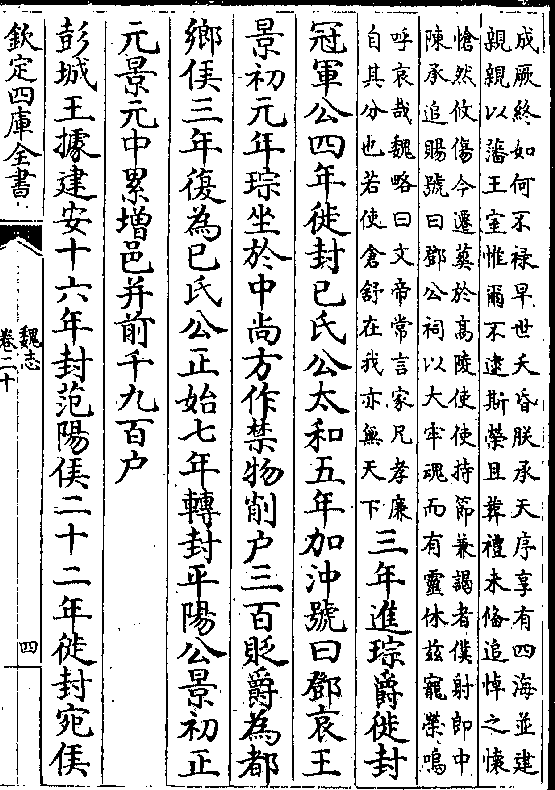 成厥終如何不禄早世夭昏朕承天序享有四海並建
親親以藩王室惟爾不逮斯榮且葬禮未俻追悼之懐
愴然攸傷今遷葬於髙陵使使持節兼謁者僕射郎中
陳承追賜號曰鄧公祠以大牢魂而有靈休兹寵榮嗚
呼哀哉魏略曰文帝常言家兄孝廉
自其分也若使倉舒在我亦無天下
三年進琮爵徙封
冠軍公四年徙封已氏公太和五年加沖號曰鄧哀王
景初元年琮坐於中尚方作禁物削户三百貶爵為都
鄉侯三年復為已氏公正始七年轉封平陽公景初正
元景元中累增邑并前千九百户
彭城王據建安十六年封范陽侯二十二年徙封宛侯
欽定四庫全書
魏志
卷二十
四